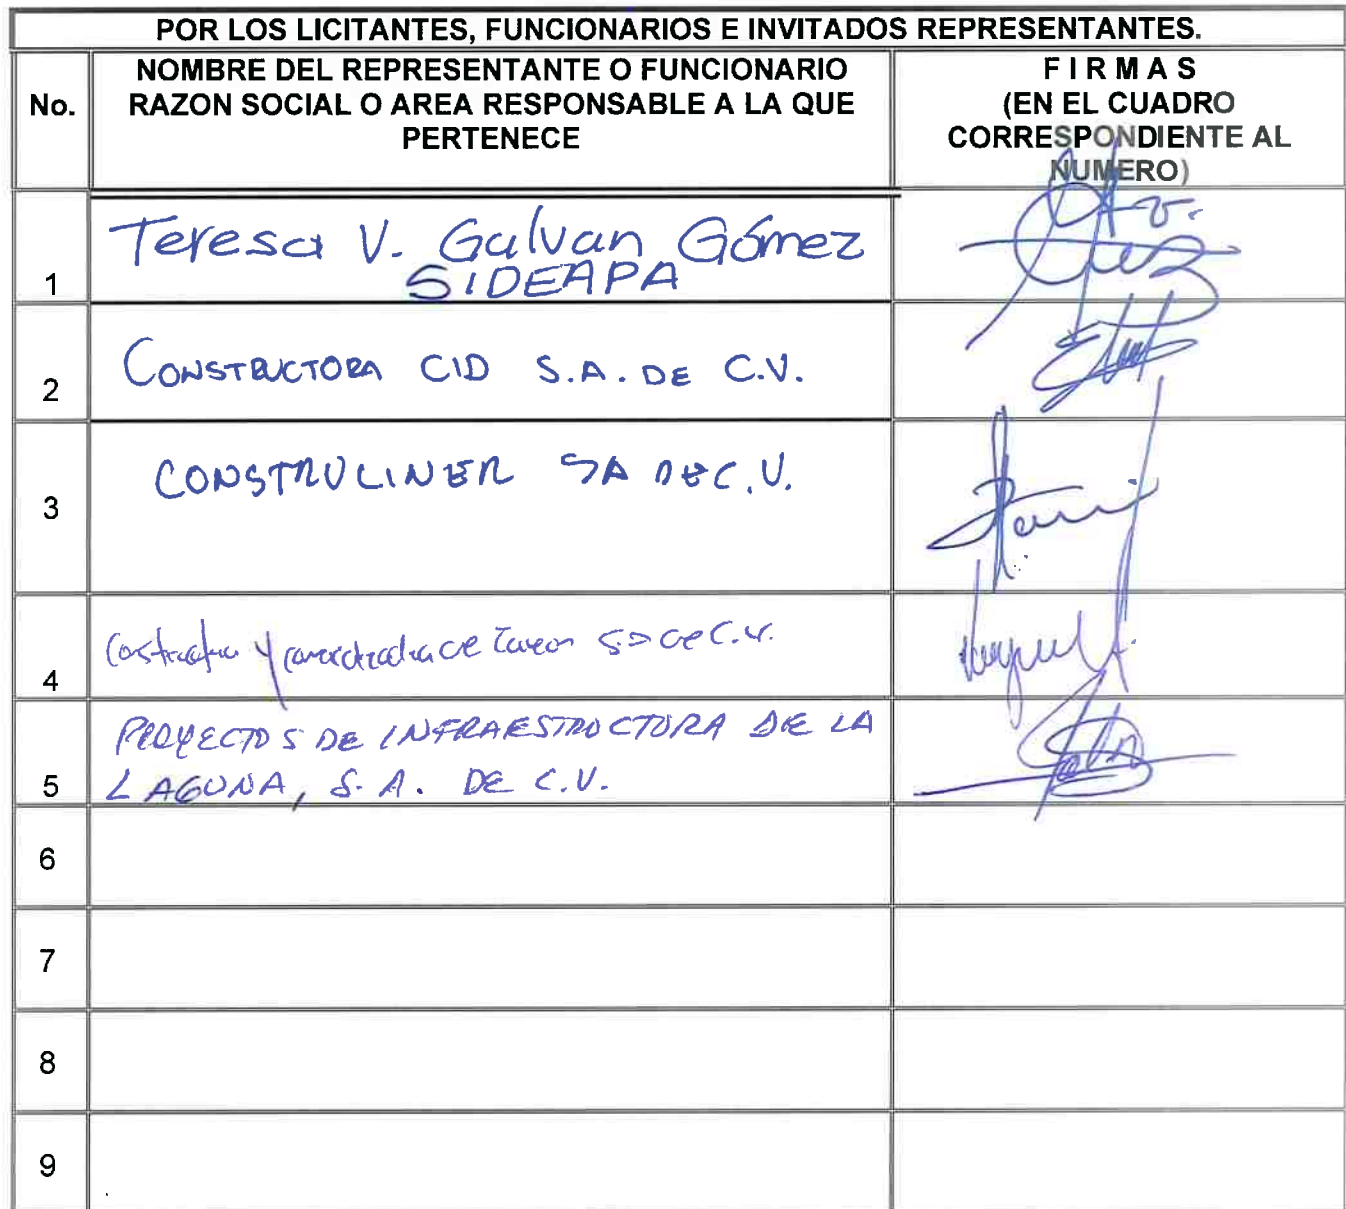 POR LOS LICITANTES, FUNCIONARIOS E INVITADOS REPRESENTANTES.
No.
NOMBRE DEL REPRESENTANTE O FUNCIONARIO
RAZON SOCIAL O AREA RESPONSABLE A LA QUE
PERTENECE
F I R M A S
(EN EL CUADRO
CORRESPONDIENTE AL
NUMERO)
1
Teresa V. Galvan Gómez
SIDEAPA
2
CONSTRUCTORA CID S.A. DE C.V.
3
CONSTRULINER SA DE C.V.
4
y de C.V.
5
PROYECTOS DE INFRAESTRUCTURA DE LA
LAGUNA, S.A. DE C.V.
6
7
8
9